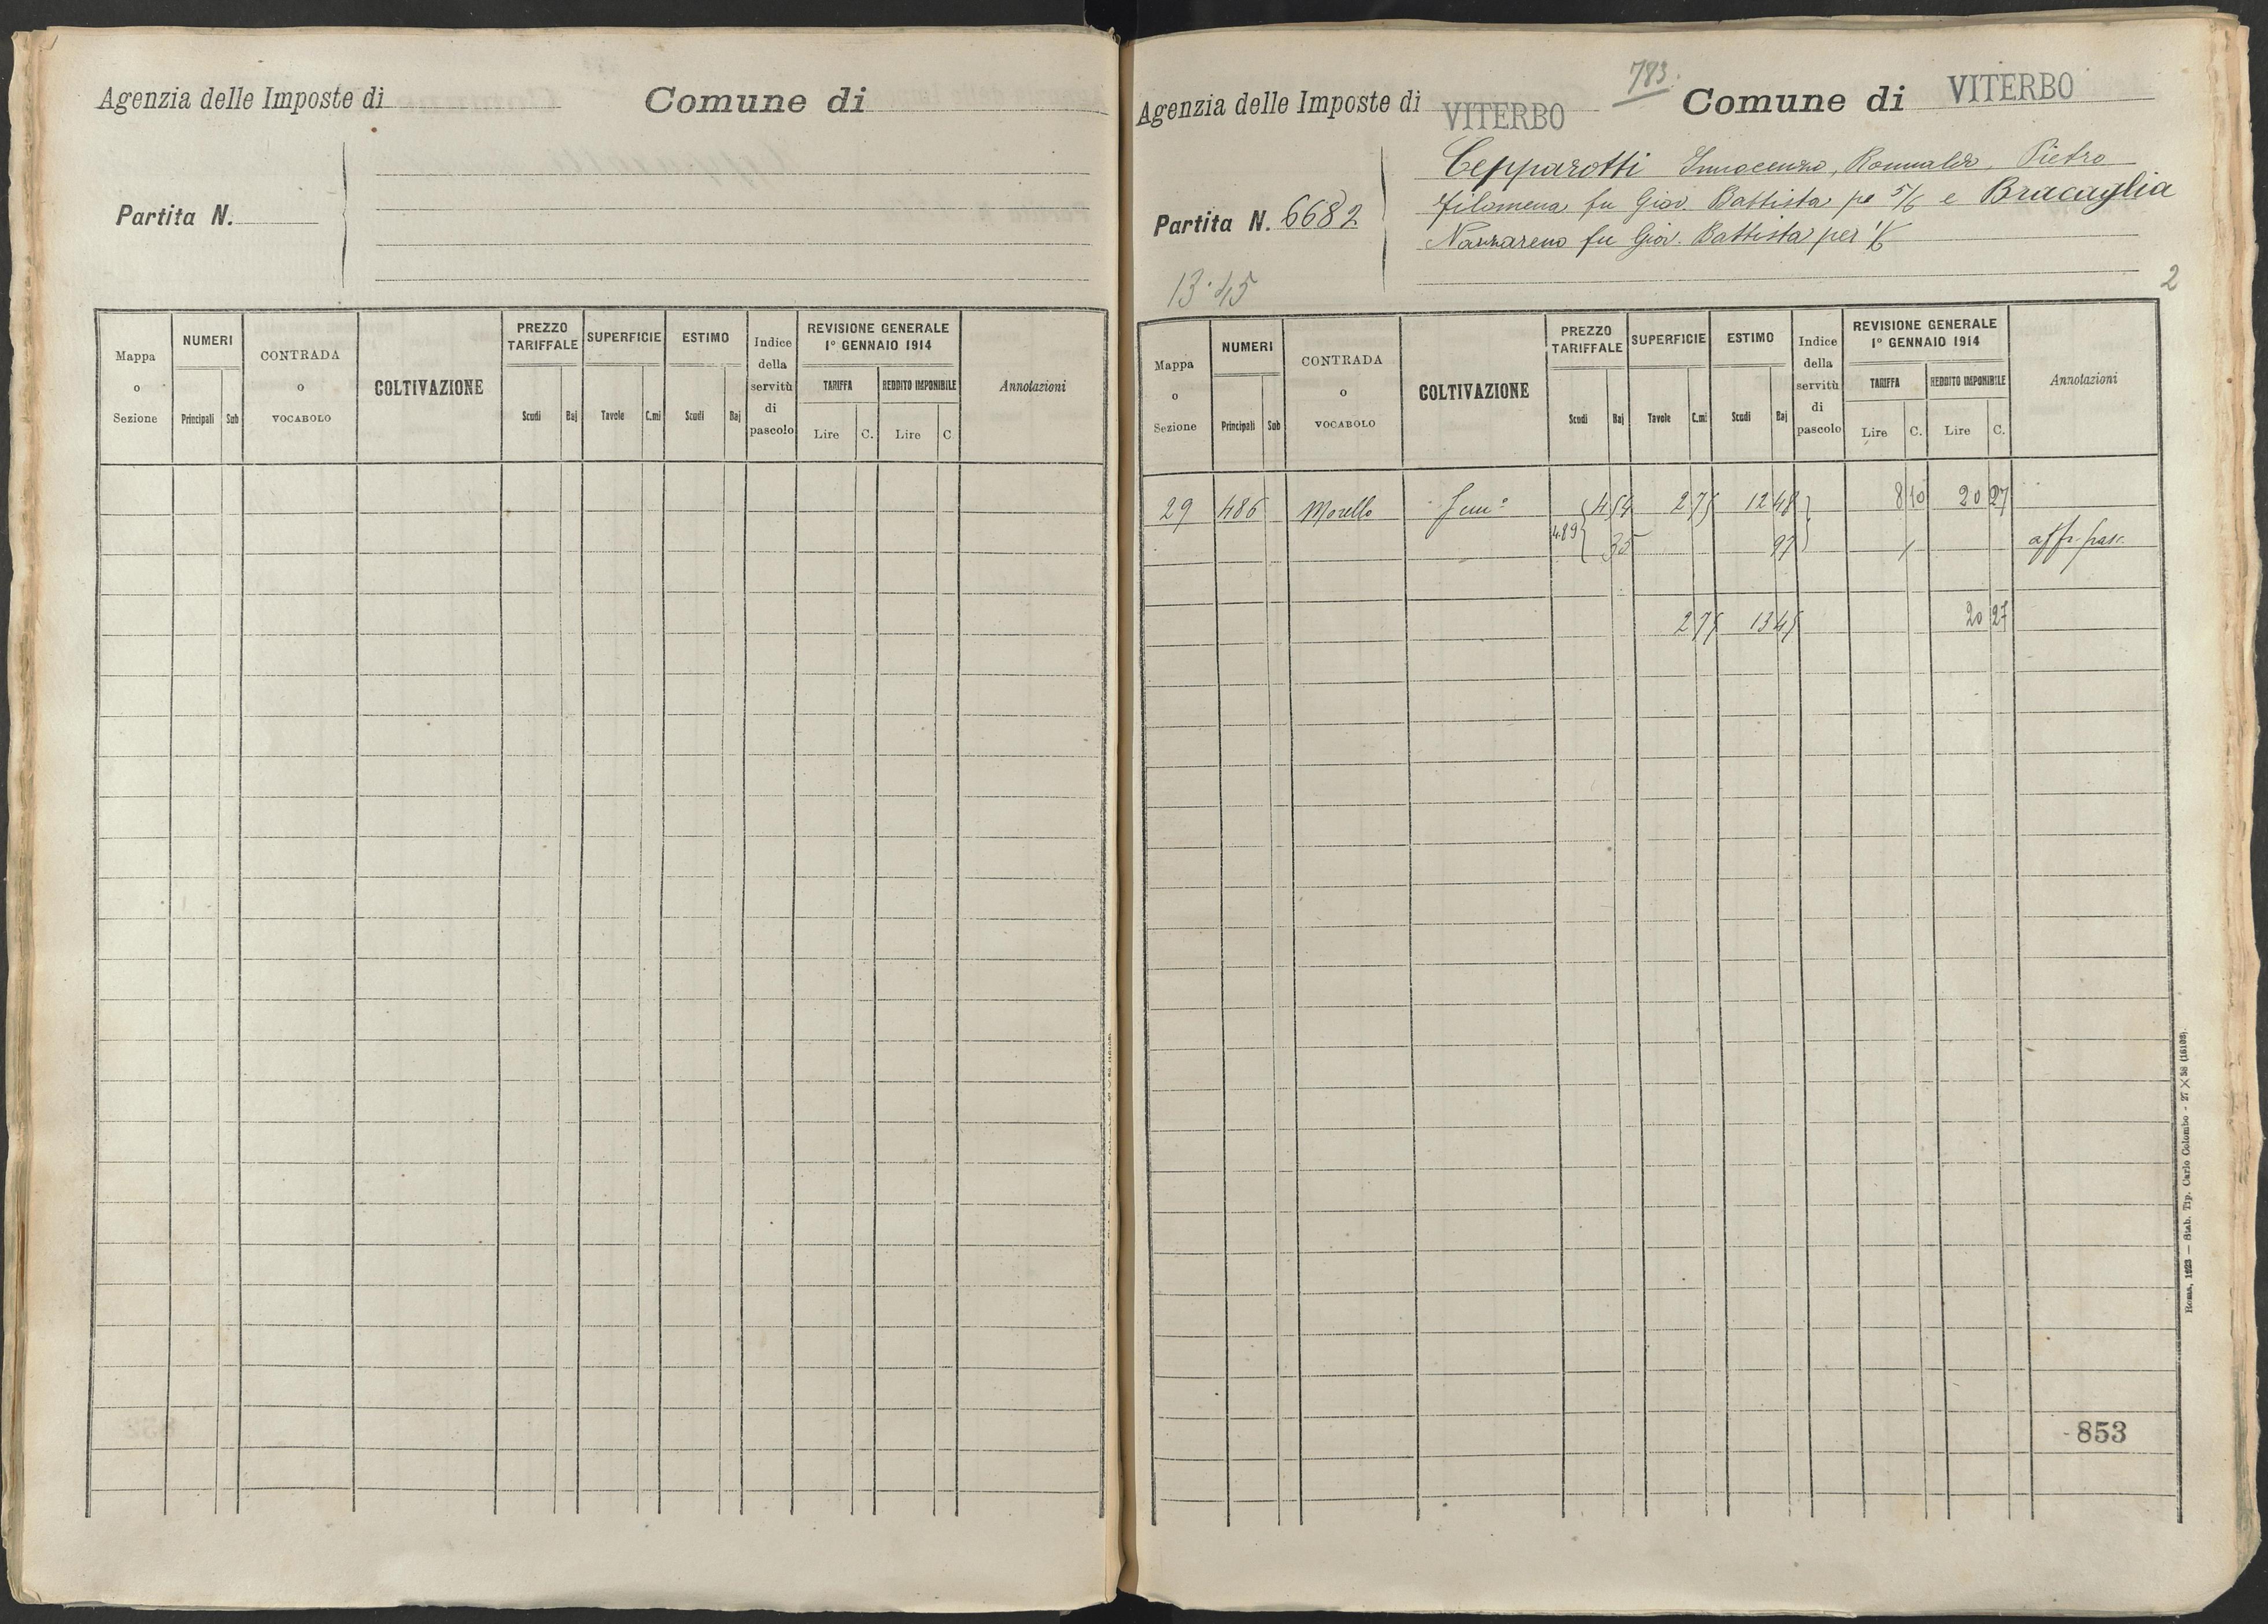 Agenzia delle Imposte di
Comune di
Partita N.
Mappa o Sezione
NUMERI
Principali
Sub
CONTRADA o VOCABOLO
COLTIVAZIONE
PREZZO TARIFFALE
Scudi
Baj
SUPERFICIE
Tavole
C.mi
ESTIMO
Scudi
Baj
Indice della servitù di pascolo
REVISIONE GENERALE
1º GENNAIO 1914
TARIFFA
Lire
C.
REDDITO IMPONIBILE
Lire
C
Annotazioni
783.
Agenzia delle Imposte di VITERBO
Comune di VITERBO
Partita N. 6682
Cepparotti Innocenzo, Romualdo, Pietro
Filomena fu Giov. Battista pe 5/6 e Bracaglia
Nazzareno fu Giov. Battista per 1/6
13.45
2
Mappa o Sezione
NUMERI
Principali
Sub
CONTRADA o VOCABOLO
COLTIVAZIONE
PREZZO TARIFFALE
Scudi
Baj
SUPERFICIE
Tavole
C.mi
ESTIMO
Scudi
Baj
Indice della servitù di pascolo
REVISIONE GENERALE
1º GENNAIO 1914
TARIFFA
Lire
C.
REDDITO IMPONIBILE
Lire
C.
Annotazioni
29 486 Morello Sem.º 4 54 2 75 12 48 8 10 20 27
4.89 35 97 affr. pasc.
2 75 13 45 20 27
853
Roma, 1923 — Stab. Tip. Carlo Colombo - 27 X 38 (16103).